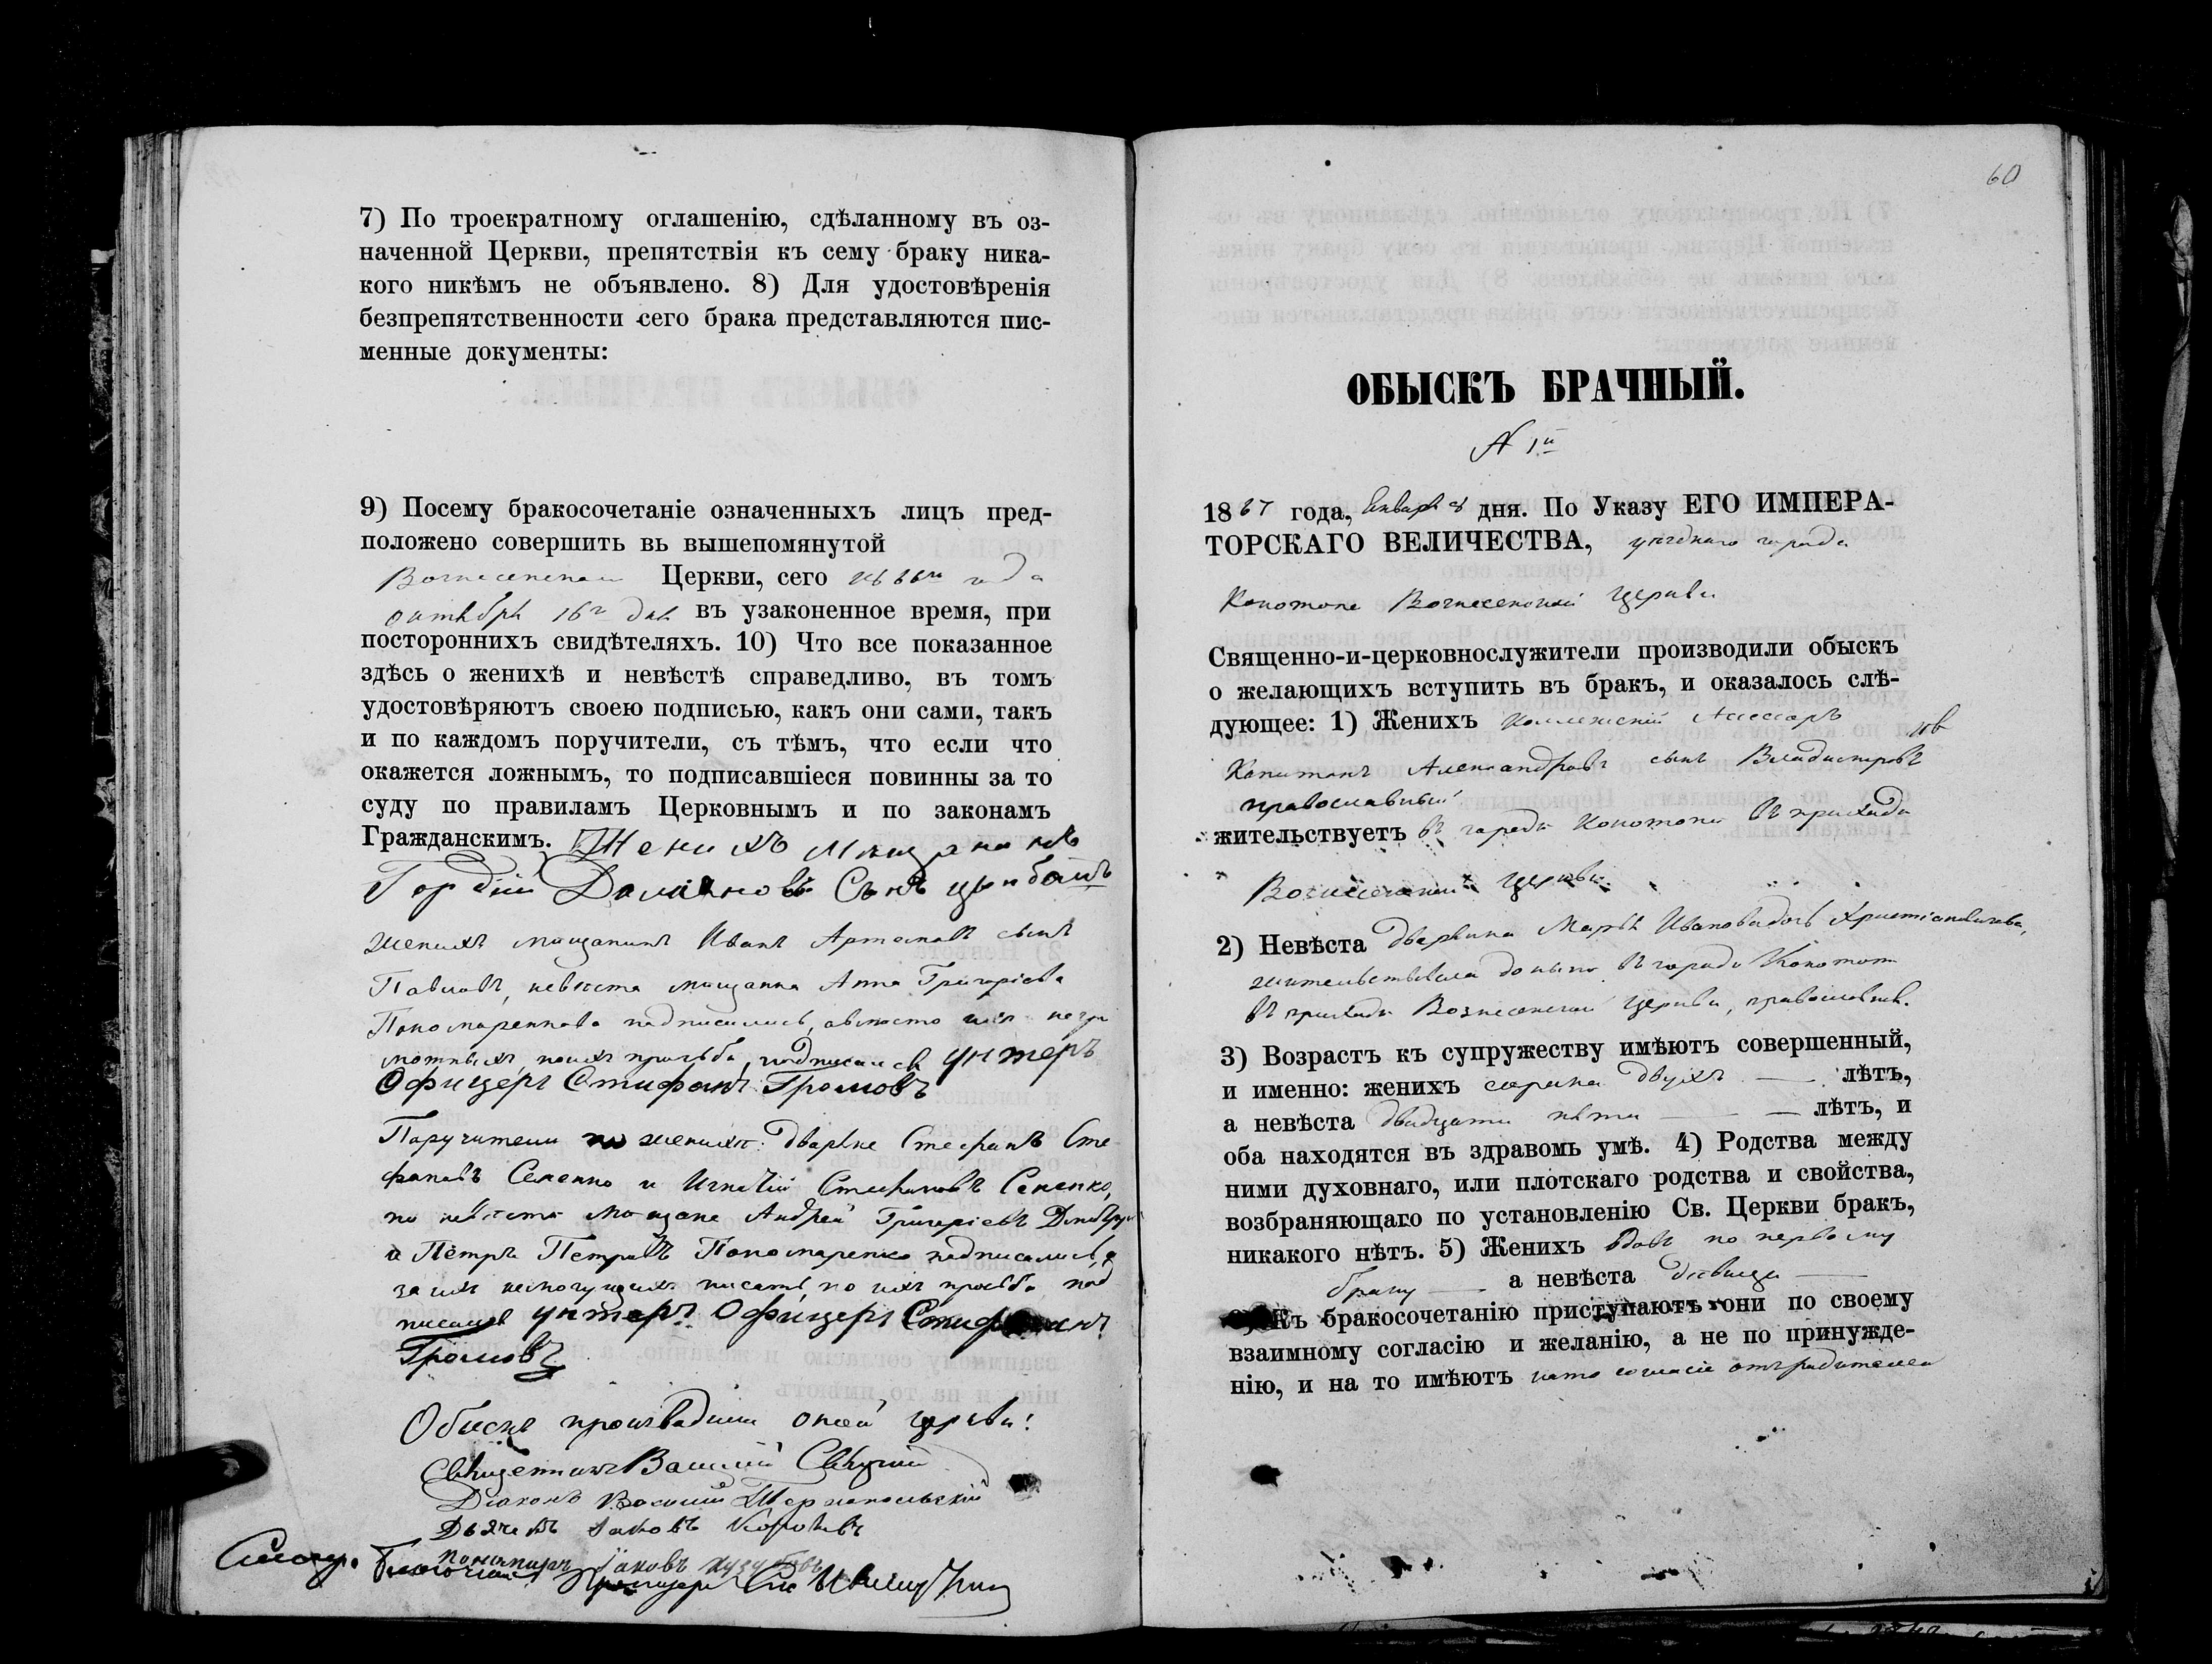 7) По троекратному оглашенію, сдѣланному въ оз-
наченной Церкви, препятствія къ сему браку ника-
кого никѣмъ не объявлено. 8) Для удостовѣренія
безпрепятственности сего брака представляются пис-
менные документы:
9) Посему бракосочетаніе означенныхъ лицъ пред-
положено совершить вь вышепомянутой
Вознесенской Церкви, сего 1866го года
октября 16го дня въ узаконенное время, при
постороннихъ свидѣтеляхъ. 10) Что все показанное
здѣсь о женихѣ и невѣстѣ справедливо, въ томъ
удостовѣряютъ своею подписью, какъ они сами, такъ
и по каждомъ поручители, съ тѣмъ, что если что
окажется ложнымъ, то подписавшіеся повинны за то
суду по правиламъ Церковнымъ и по законамъ
Гражданскимъ. Женихъ мищанинъ
Гордій Даміановъ Сынъ
женихъ мѣщанинъ Иванъ Артемовъ сынъ
Павловъ, невѣста мѣщанка Анна Григоріева
Пономаренкова подписались, а вмѣсто ихъ негра
мотныхъ, по ихъ прозьбѣ, подписался унтеръ
Офицеръ Стифанъ Громовъ
Поручители по женихѣ: дворяне Стефанъ Сте
фановъ Сененко и Игнатій Стефановъ Сененко,
по невѣстѣ мѣщане Андрей Григоріевъ
и Петръ Петровъ Пономаренко подписались, а
за ихъ немогущихъ писать, по ихъ прозьбѣ под
писался унтеръ Офицеръ Стифанъ
Громовъ
Обыскъ производили оной церкви:
Священникъ Василій
Діаконъ Василій
Дьячекъ Іаковъ
Пономарь Іаковъ
60
ОБЫСКЪ БРАЧНЫЙ.
N 1й
1867 года, Января 8 дня. По Указу ЕГО ИМПЕРА-
ТОРСКАГО ВЕЛИЧЕСТВА, уѣзднаго города
Конотопа Вознесенской Церкви
Священно-и-церковнослужители производили обыскъ
о желающихъ вступить въ бракъ, и оказалось слѣ-
дующее: 1) Женихъ Коллежскій Ассесоръ
Капитонъ Александровъ сынъ
православный
жительствуетъ въ городѣ Конотопѣ въ приходѣ
Вознесенской Церкви
2) Невѣста дворянка Марья Иванова дочь
жительствовала донынѣ въ городѣ Конотопѣ
въ приходѣ Вознесенской Церкви, православн.
3) Возрастъ къ супружеству имѣютъ совершенный,
и именно: женихъ сорока двухъ — лѣтъ,
а невѣста двадцати пяти — — лѣтъ, и
оба находятся въ здравомь умѣ. 4) Родства между
ними духовнаго, или плотскаго родства и свойства,
возбраняющаго по установленію Св. Церкви бракъ,
никакого нѣтъ. 5) Женихъ вдовъ по первому
браку — а невѣста дѣвица —
Къ бракосочетанію приступаютъ они по своему
взаимному согласію и желанію, а не по принужде-
нію, и на то имѣютъ на то согласіе отъ родителей